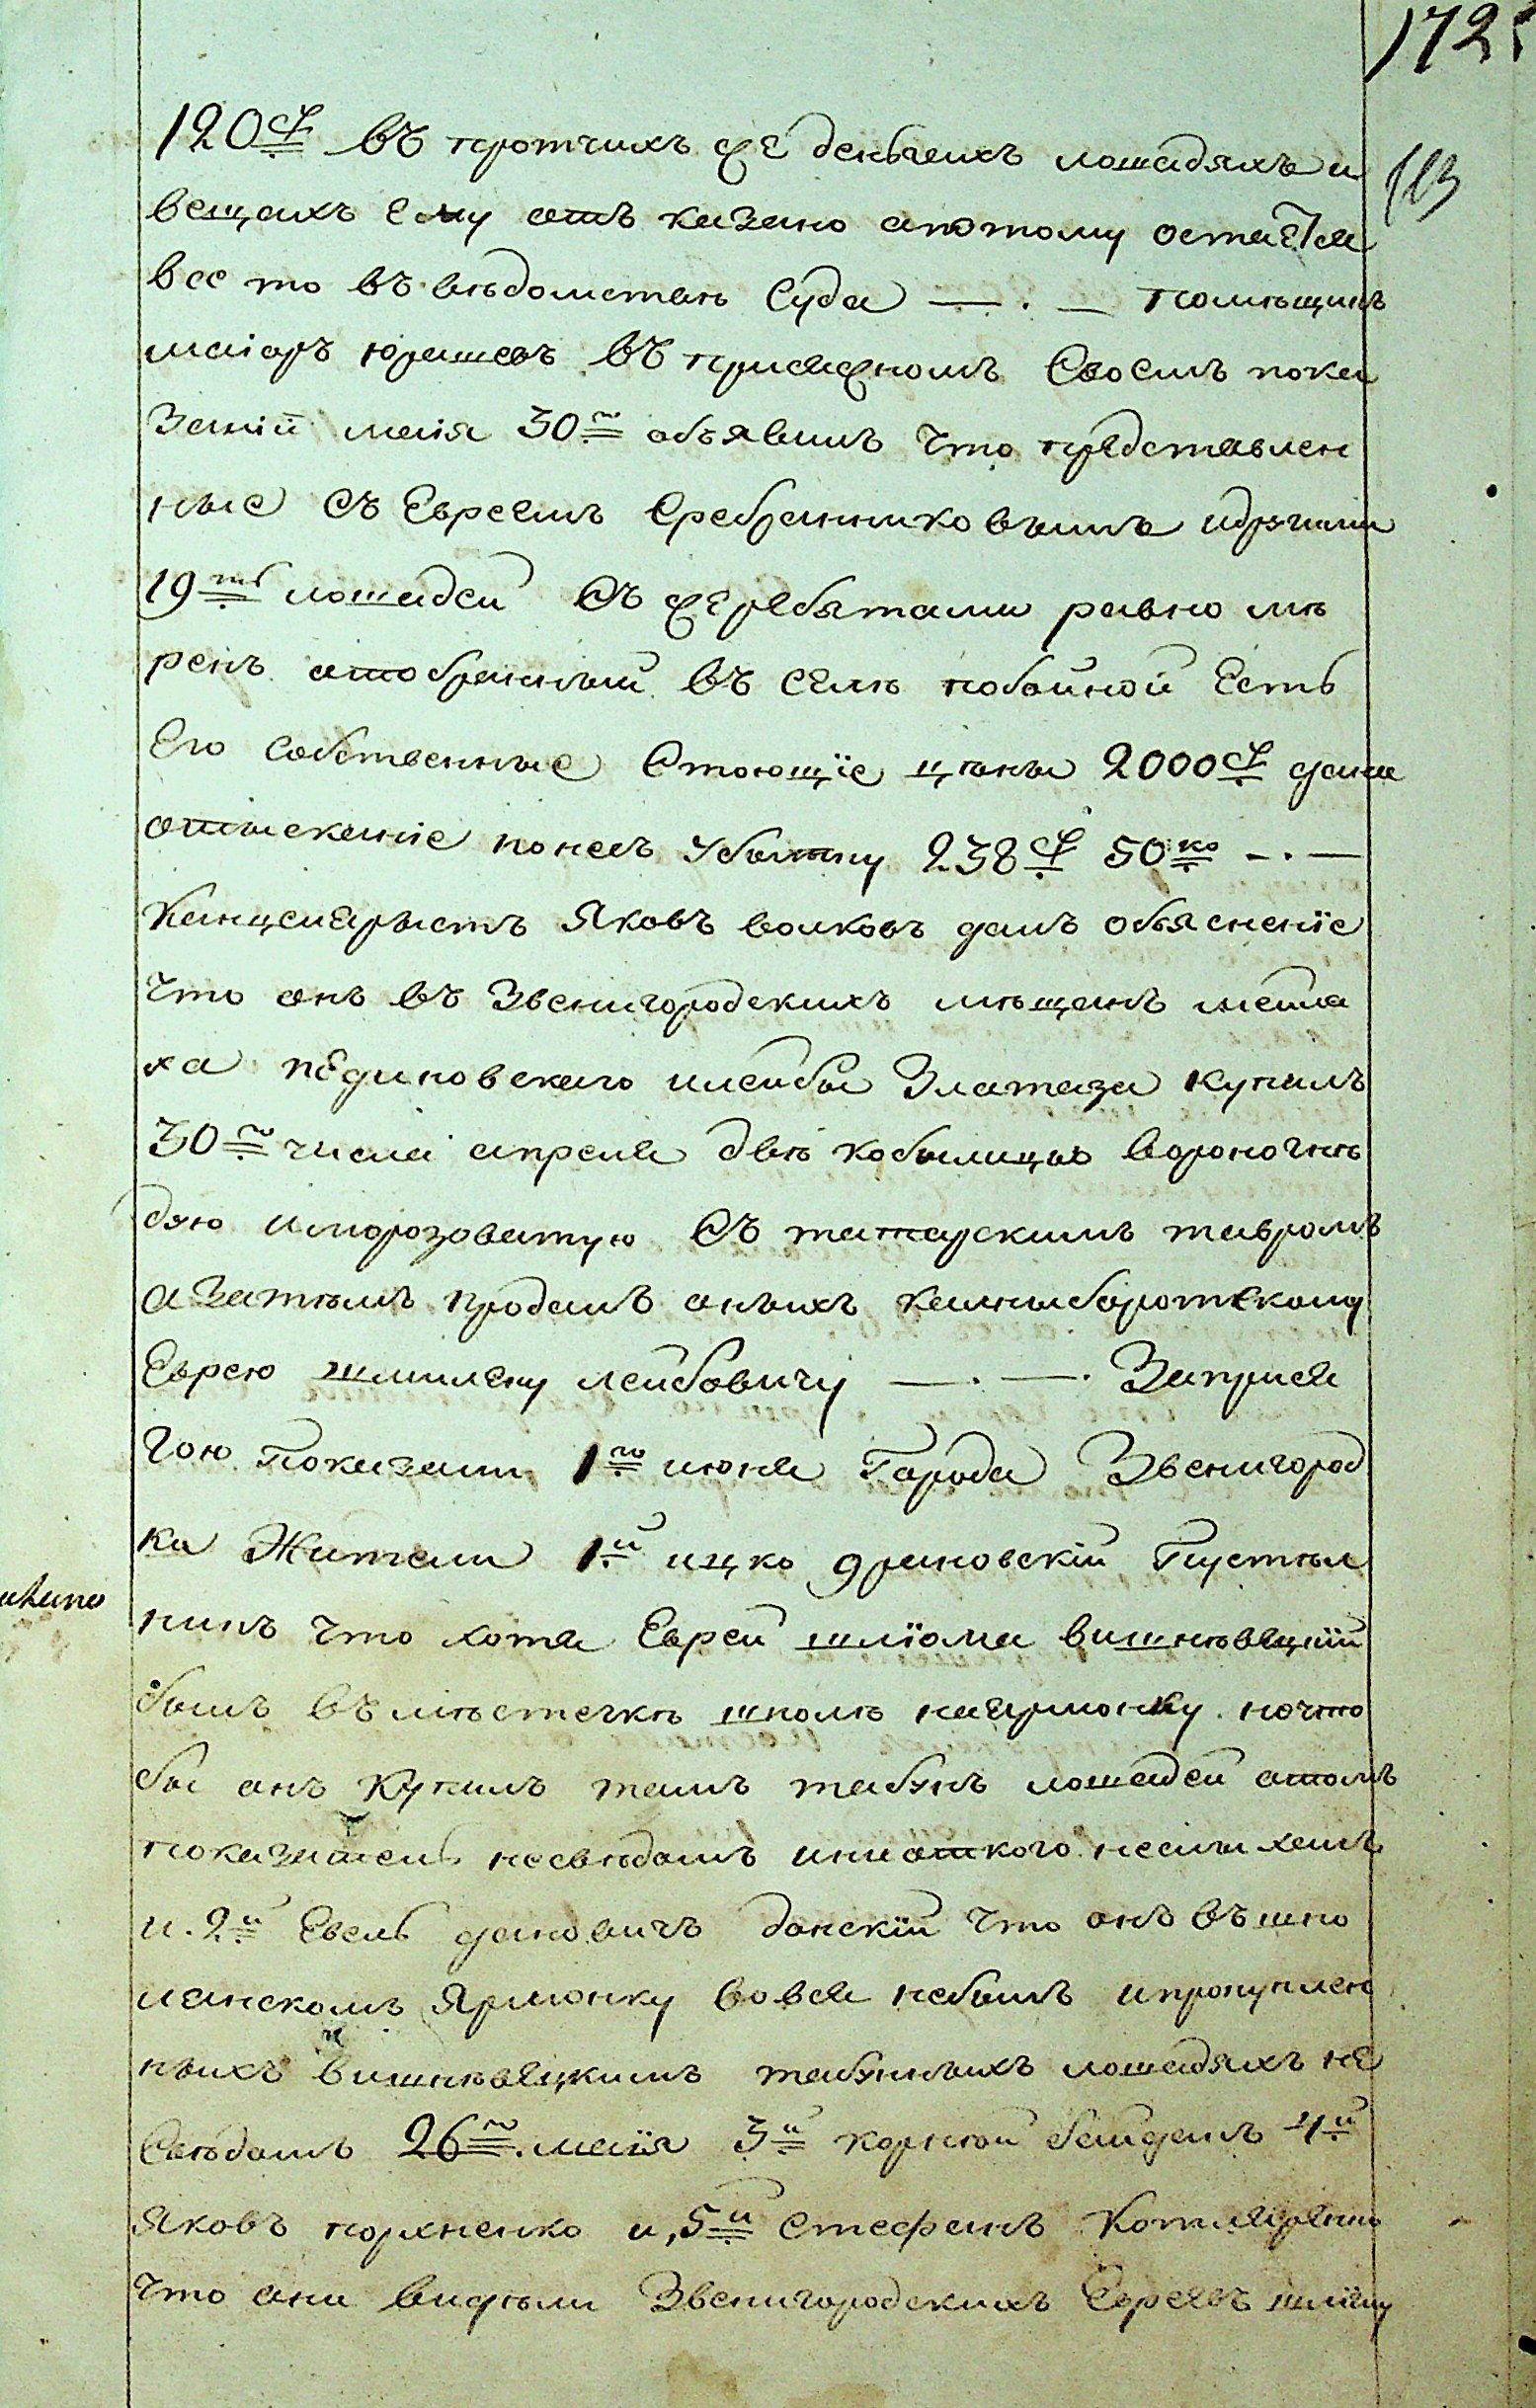 172
113
120 р въ протчихъ же деньгахъ лошадяхъ и
вещахъ ему отъ казано апотому остается
все то въ вѣдомстве Суда —.— помѣщикъ
маіоръ юрашевъ въ присяжномъ Своемъ пока
заніи маія 30го объявилъ что представлен
ные Съ Евреемъ Серебрянниковымъ идругими
19ть лошадей Съ жеребятами равно мѣ
ренъ отобранный въ селѣ побойной Есть
Его Собственные Стоющіе цѣны 2000 р дана
отысканіе понесъ убытку 238 р 50 ко —.—
Канцеляристъ Яковъ волковъ далъ объясненіе
что онъ въ Звенигородскихъ мѣщанъ
ха илейбы Златаза купилъ
30го числа апреля двѣ кобылицы вороногнѣ
дую иморозоватую Съ татарскимъ тавромъ
а Затѣмъ продалъ оныхъ
Еврею лейбовичу —.—. Заприся
гою Показали 1го июня Города Звенигород
ка Жители 1й ицко драновскій Пустыл
никъ что хотя Еврей шліома вишнѣвецкій
былъ въ мѣстечкѣ шполѣ наярмонку ночто
бы онъ купилъ тамъ табунъ лошадей отомъ
показатель несвѣдомъ иниоткого неслыхалъ
и. 2й Евель дановичъ донскій что онъ въ шпо
лянскомъ Ярмонку вовся небылъ ипрокуплен
ныхъ вишнѣвецкимъ табунныхъ лошадяхъ не
Свѣдомъ 26го маія 3й корнѣй байданъ 4й
Яковъ порхненко и, 5й Стефанъ Котляренко
что они видѣли Звенигородскихъ Евреевъ шліому